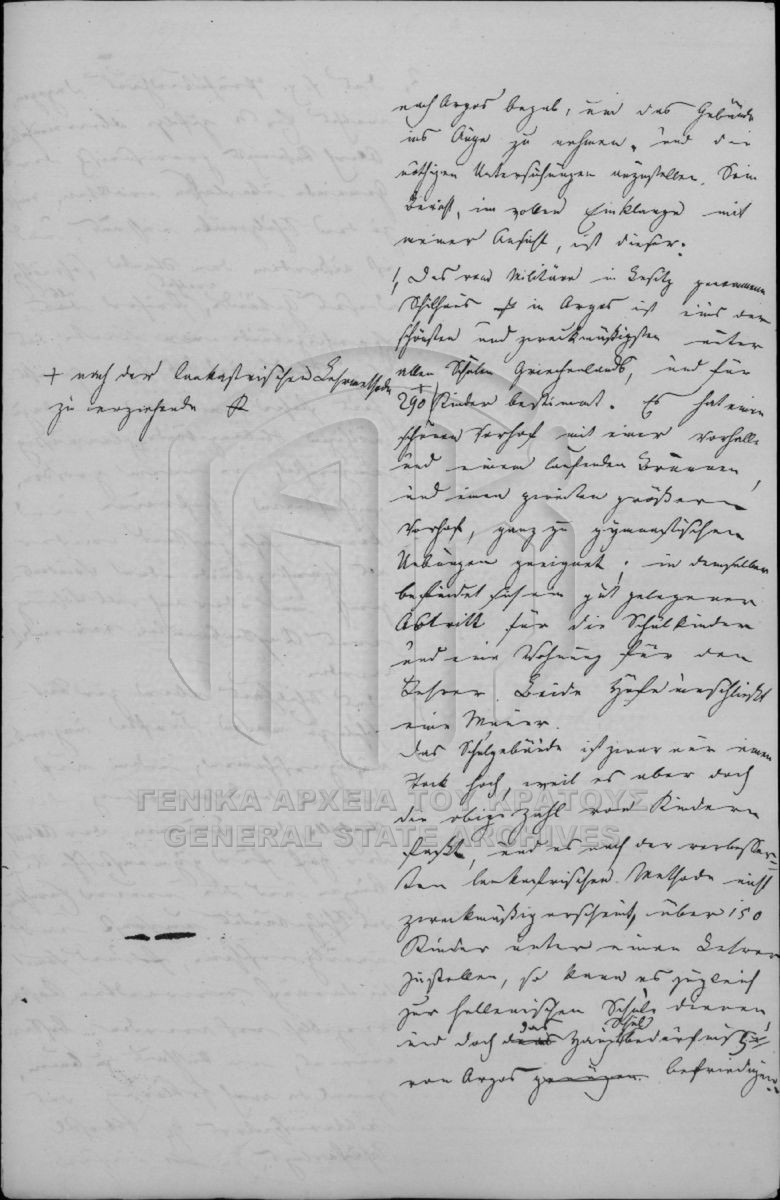 nach Argos begab, um das Gebäude
ins Auge zu nehmen, und die
nöthigen Untersuchungen anzustellen. Sein
Bericht, im vollen Einklange mit
meiner Ansicht, ist dieser:
1, Das vom Militäre in Besitz genommene
Schulhaus in Argos ist eins der
schönsten und zweckmäßigsten unter
allen Schulen Griechenlands, und für
+ nach der lankastrischen Lehrmethode
zu erziehende
290 + Kinder bestimmt. Es hat einen
schönen Vorhof mit einer Vorhalle
und einem laufenden Brunnen,
und einen zweiten größern
Vorhof, ganz zu gymnastischen
Uebungen geeignet; in demselben
befindet sich ein gut gelegener
Abtritt für die Schulkinder
und eine Wohnung für den
Lehrer. Beide Höfe umschließt
eine Mauer.
Das Schulgebäude ist zwar nur einen
Stock hoch, weil es aber doch
die obige Zahl von Kindern
faßt, und es nach der verbesser=
ten lankastrischen Methode nicht
zweckmäßig erscheint, über 150
Kinder unter einen Lehrer
zu stellen, so kann es zugleich
zur hellenischen Schule dienen,
und doch das Schul
bedürfniß
von Argos genügen befriedigen.
ΓΕΝΙΚΑ ΑΡΧΕΙΑ ΤΟΥ ΚΡΑΤΟΥΣ
GENERAL STATE ARCHIVES